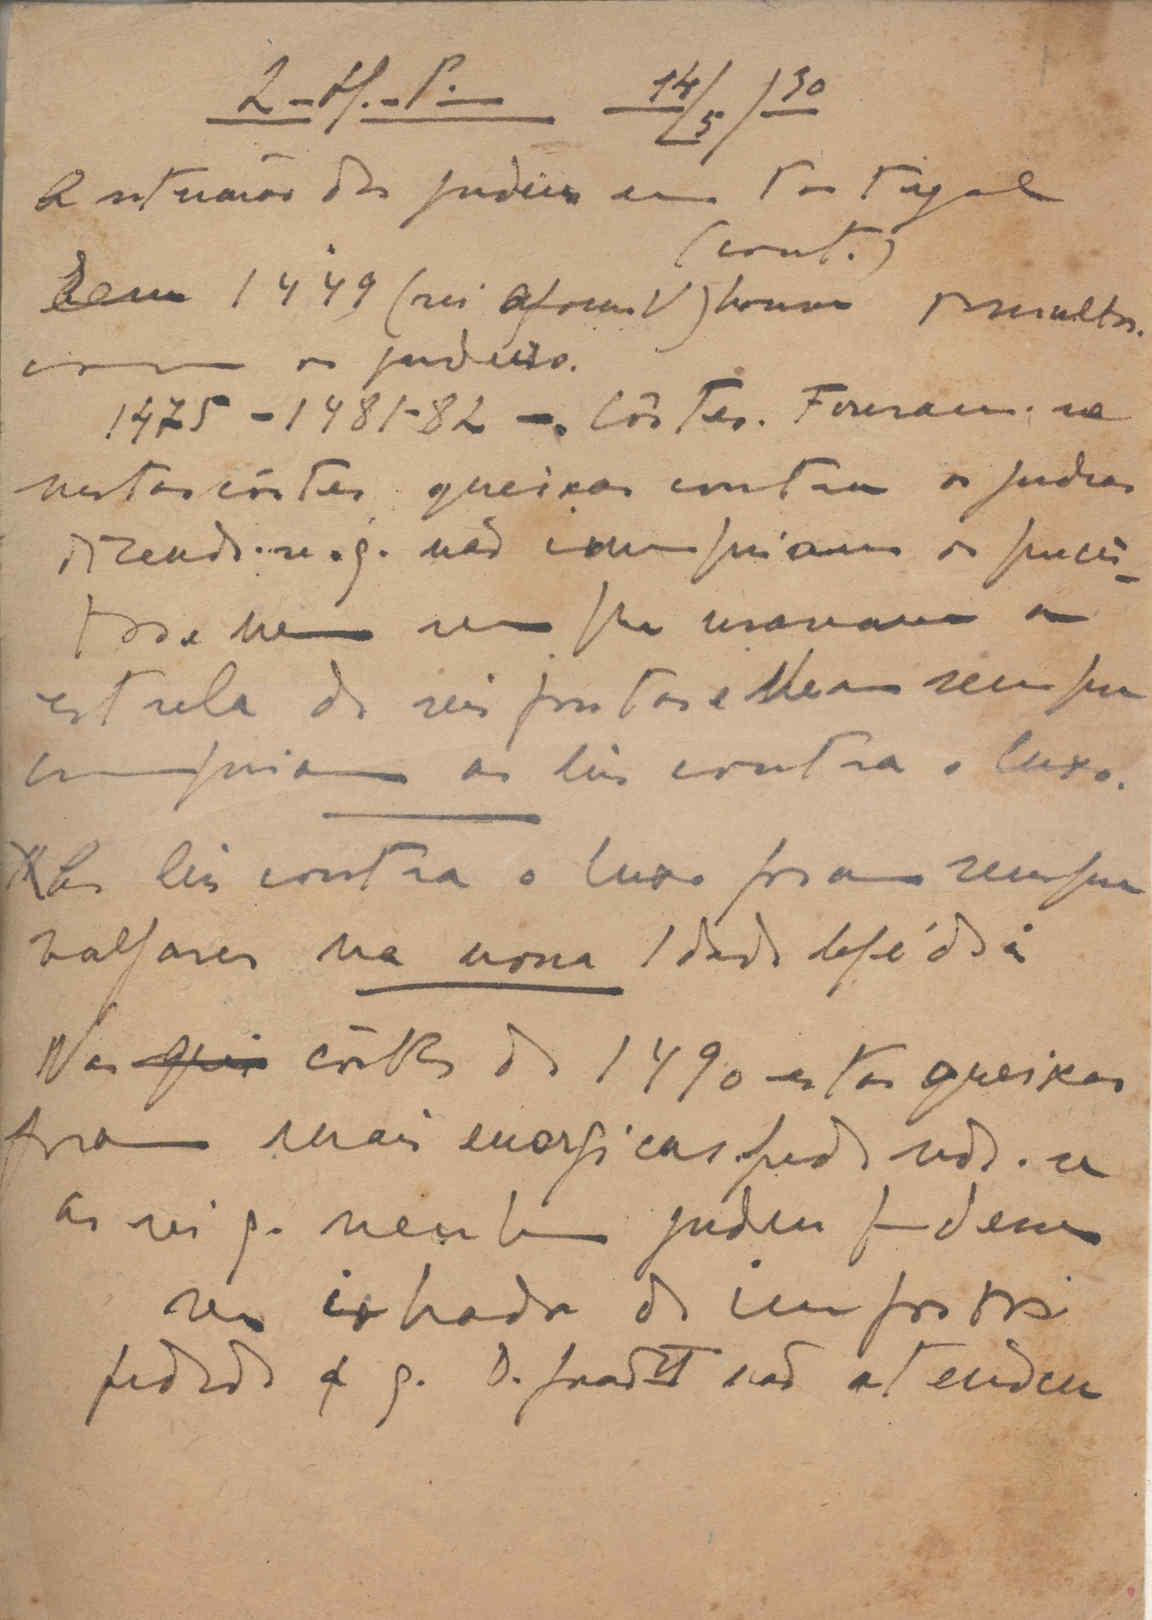 2-H.-P. 14/5/30
A situação dos judeus em Portugal
(cont.)
Em 1449 (rei Afonso V) houve tumultos
com os judeus.
1475-1481-82 - Côrtes. Fizeram-se
nestas côrtes queixas contra os judeus
dizendo-se q. não cumpriam os precei-
tos e nem sempre usavam a
estrela de seis pontas e nem sempre
cumpriam as leis contra o luxo.
As leis contra o luxo foram sempre
vulgares na nossa Idade Média
Nas côrtes de 1490 estas queixas
foram mais energicas pedindo-se
ao rei q. nenhum judeu pudesse
ser cobrador de impostos
pedido a q. D. João II não atendeu